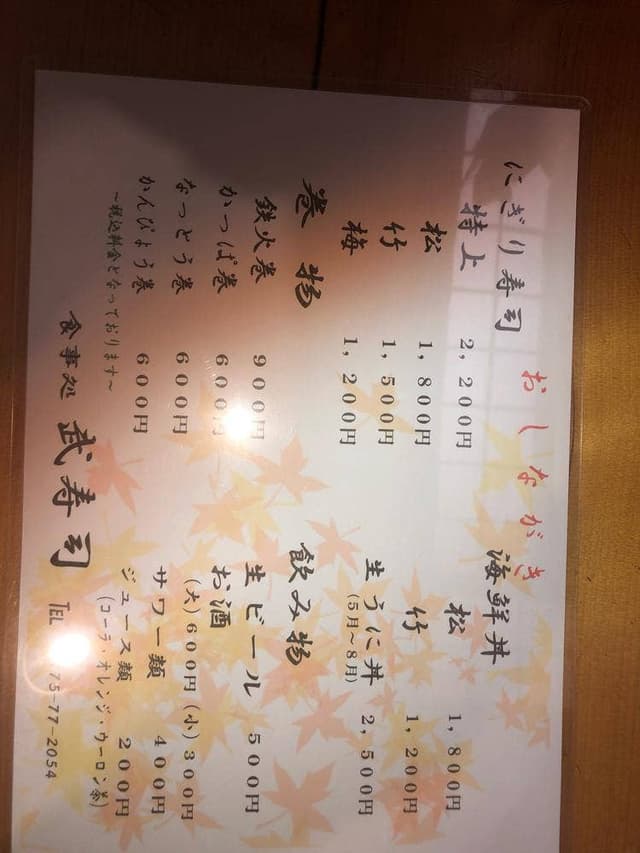 おしながき
にぎり寿司
特上 2,200円
松 1,800円
竹 1,500円
梅 1,200円
巻物
鉄火巻 900円
かっぱ巻 600円
なっとう巻 600円
かんぴょう巻 600円
～税込料金となっております～
海鮮丼
松 1,800円
竹 1,200円
生うに丼 2,500円
(5月～8月)
飲み物
生ビール 500円
お酒
(大)600円(小)300円
サワー類 400円
ジュース類 200円
(コーラ・オレンジ・ウーロン茶)
食事処 武寿司 TEL 75-77-2054